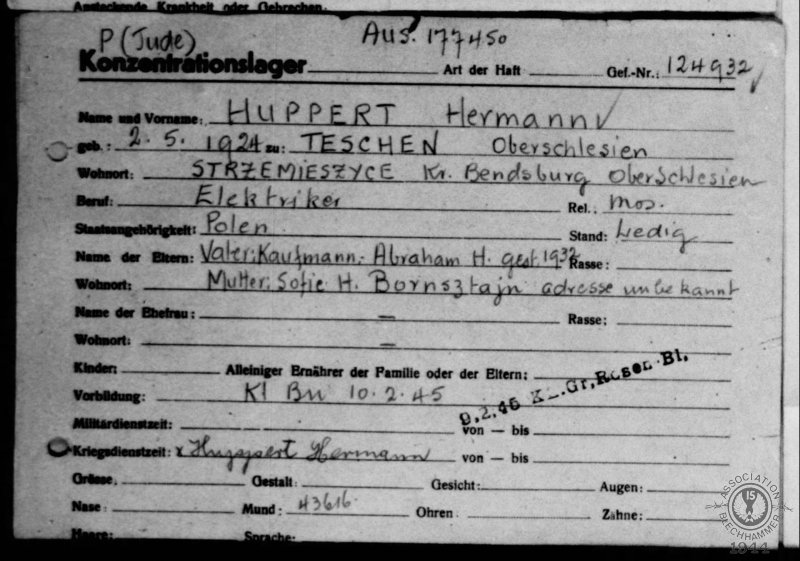 Ansteckende Krankheit oder Gebrechen.
P (Jude) Aus. 177450
Konzentrationslager Art der Haft Gef.-Nr.: 124932
Name und Vorname: HUPPERT Hermann
geb.: 2. 5. 1924 zu: TESCHEN Oberschlesien
Wohnort: STRZEMIESZYCE Kr. Bendsburg Oberschlesien
Beruf: Elektriker Rel.: mos.
Staatsangehörigkeit: Polen Stand: Ledig
Name der Eltern: Vater: Kaufmann: Abraham H. gest. 1932 Rasse:
Wohnort: Mutter: Sofie H. Bornsztajn adresse unbekannt
Name der Ehefrau: — Rasse:
Wohnort: —
Kinder: Alleiniger Ernährer der Familie oder der Eltern:
Vorbildung: Kl Bu 10.2.45
9.2.45 KL. Gr. Rosen Bl.
Militärdienstzeit: von — bis
Kriegsdienstzeit: x Huppert Hermann von — bis
Grösse: Gestalt: Gesicht: Augen:
Nase: Mund: 43616 Ohren: Zähne:
Haare: Sprache:
ASSOCIATION
15
BLECHHAMMER
1944